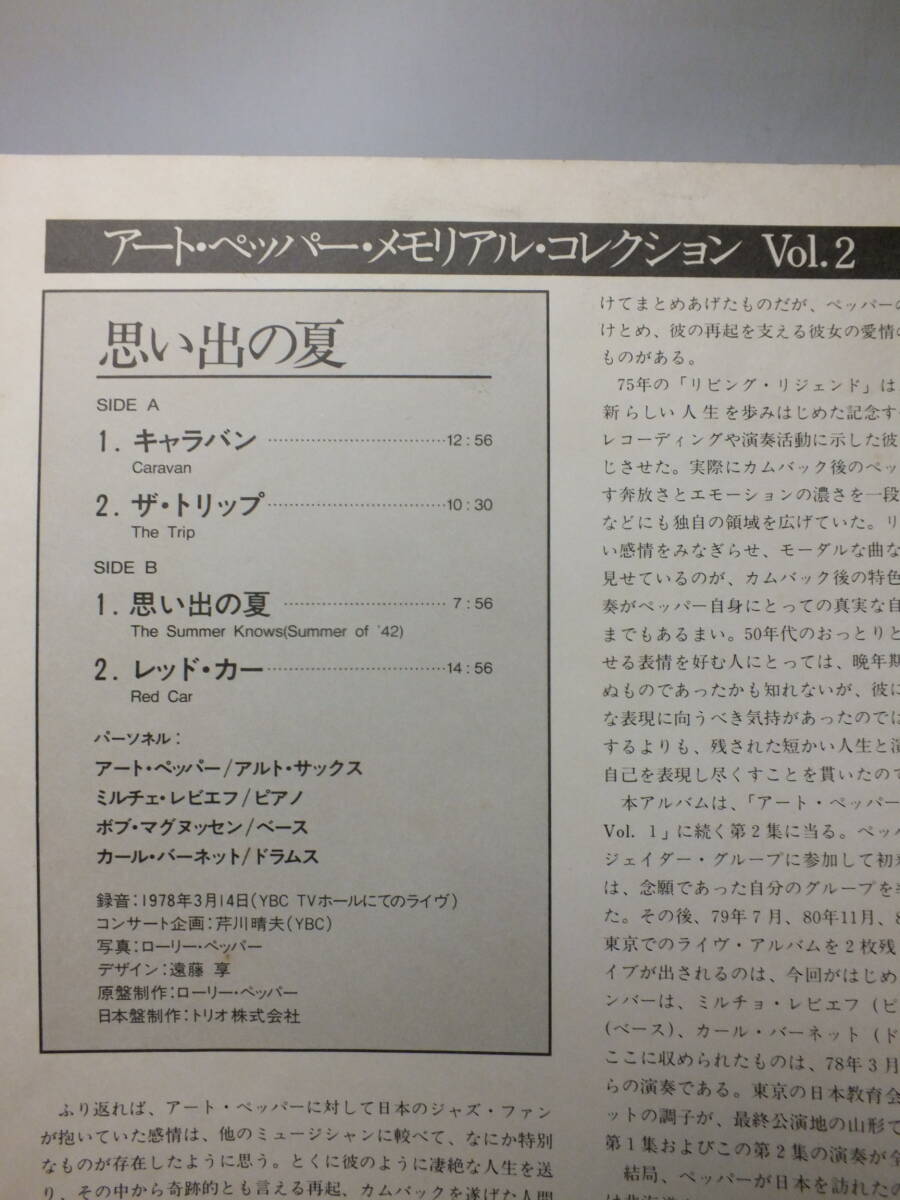 アート・ペッパー・メモリアル・コレクション Vol.2
思い出の夏
SIDE A
1. キャラバン 12:56
Caravan
2. ザ・トリップ 10:30
The Trip
SIDE B
1. 思い出の夏 7:56
The Summer Knows(Summer of '42)
2. レッド・カー 14:56
Red Car
パーソネル:
アート・ペッパー/アルト・サックス
ミルチェ・レビエフ/ピアノ
ボブ・マグヌッセン/ベース
カール・バーネット/ドラムス
録音:1978年3月14日(YBC TVホールにてのライヴ)
コンサート企画:芹川晴夫(YBC)
写真:ローリー・ペッパー
デザイン:遠藤 享
原盤制作:ローリー・ペッパー
日本盤制作:トリオ株式会社
ふり返れば、アート・ペッパーに対して日本のジャズ・ファン
が抱いていた感情は、他のミュージシャンに較べて、なにか特別
なものが存在したように思う。とくに彼のように凄絶な人生を送
り、その中から奇跡的とも言える再起、カムバックを遂げた人間
けてまとめあげたものだが、ペッパーの
けとめ、彼の再起を支える彼女の愛情の
ものがある。
75年の「リビング・リジェンド」は、
新らしい人生を歩みはじめた記念す
レコーディングや演奏活動に示した彼
じさせた。実際にカムバック後のペッ
す奔放さとエモーションの濃さを一段
などにも独自の領域を広げていた。リ
い感情をみなぎらせ、モーダルな曲な
見せているのが、カムバック後の特色
奏がペッパー自身にとっての真実な自
までもあるまい。50年代のおっとりと
せる表情を好む人にとっては、晩年期
ぬものであったかも知れないが、彼に
な表現に向うべき気持があったのでは
するよりも、残された短かい人生と演
自己を表現し尽くすことを貫いたので
本アルバムは、「アート・ペッパー
Vol. 1」に続く第2集に当る。ペッパ
ジェイダー・グループに参加して初来
は、念願であった自分のグループを率
た。その後、79年7月、80年11月、8
東京でのライヴ・アルバムを2枚残
イブが出されるのは、今回がはじめ
ンバーは、ミルチョ・レビエフ (ピ
(ベース)、カール・バーネット (ド
ここに収められたものは、78年3月
らの演奏である。東京の日本教育会
ットの調子が、最終公演地の山形で
第1集およびこの第2集の演奏が全
結局、ペッパーが日本を訪れたの